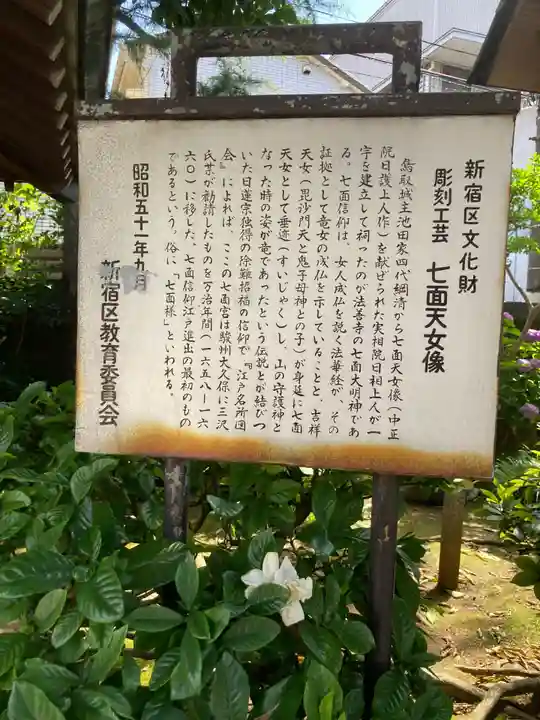 新宿区文化財
彫刻工芸 七面天女像
鳥取城主池田家四代綱清から七面天女像(中正
院日護上人作)を献ぜられた実相院日相上人が一
宇を建立して祠ったのが法善寺の七面大明神であ
る。七面信仰は、女人成仏を説く法華経が、その
証拠として竜女の成仏を示していることと、吉祥
天女(毘沙門天と鬼子母神との子)が身延に七面
天女として垂迹(すいじゃく)し、山の守護神と
なった時の姿が竜であったという伝説とが結びつ
いた日蓮宗独得の除難招福の信仰で『江戸名所図
会』によれば、ここの七面宮は駿州大久保に三沢
氏某が勧請したものを万治年間(一六五八―一六
六〇)に移した、七面信仰江戸進出の最初のもの
であるという。俗に「七面様」といわれる。
昭和五十一年九月
新宿区教育委員会